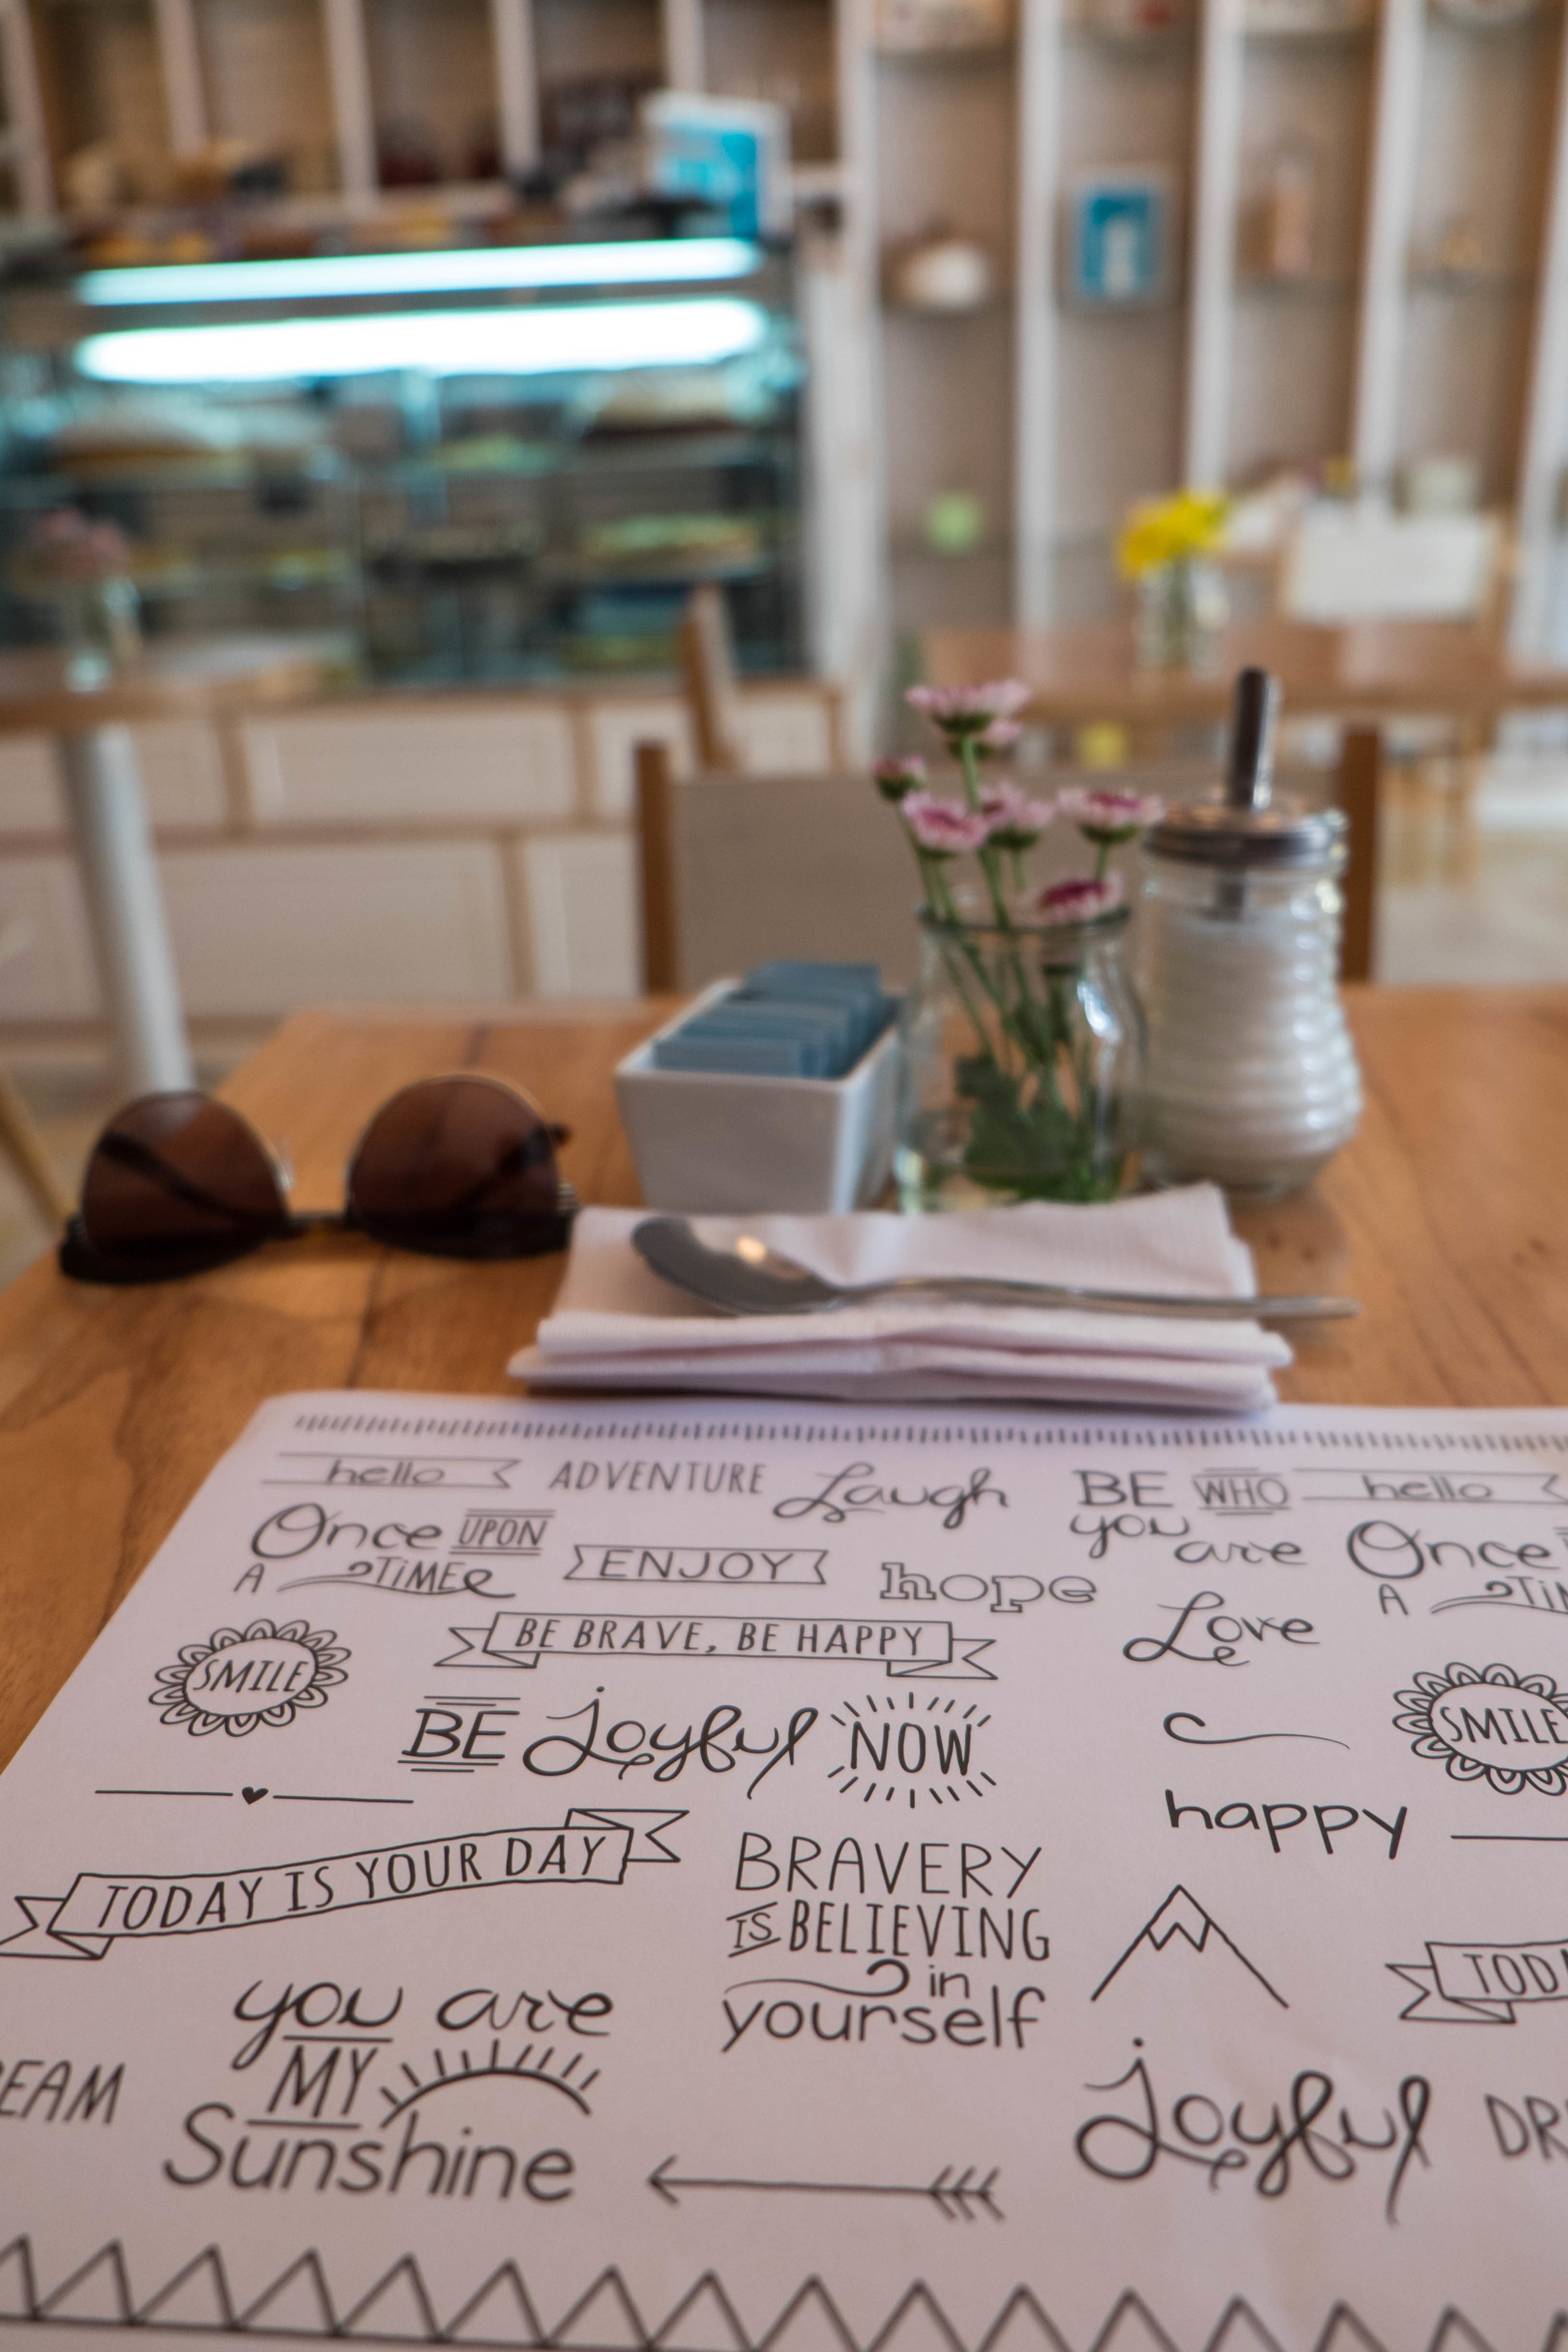 hello
ADVENTURE
Laugh
BE WHO
you are
hello
Once UPON
A TIME
ENJOY
hope
Once
A TI
BE BRAVE, BE HAPPY
Love
SMILE
SMILE
BE Joyful NOW
happy
TODAY IS YOUR DAY
BRAVERY
IS BELIEVING
in
yourself
TOD
you are
MY
Sunshine
EAM
Joyful
DR